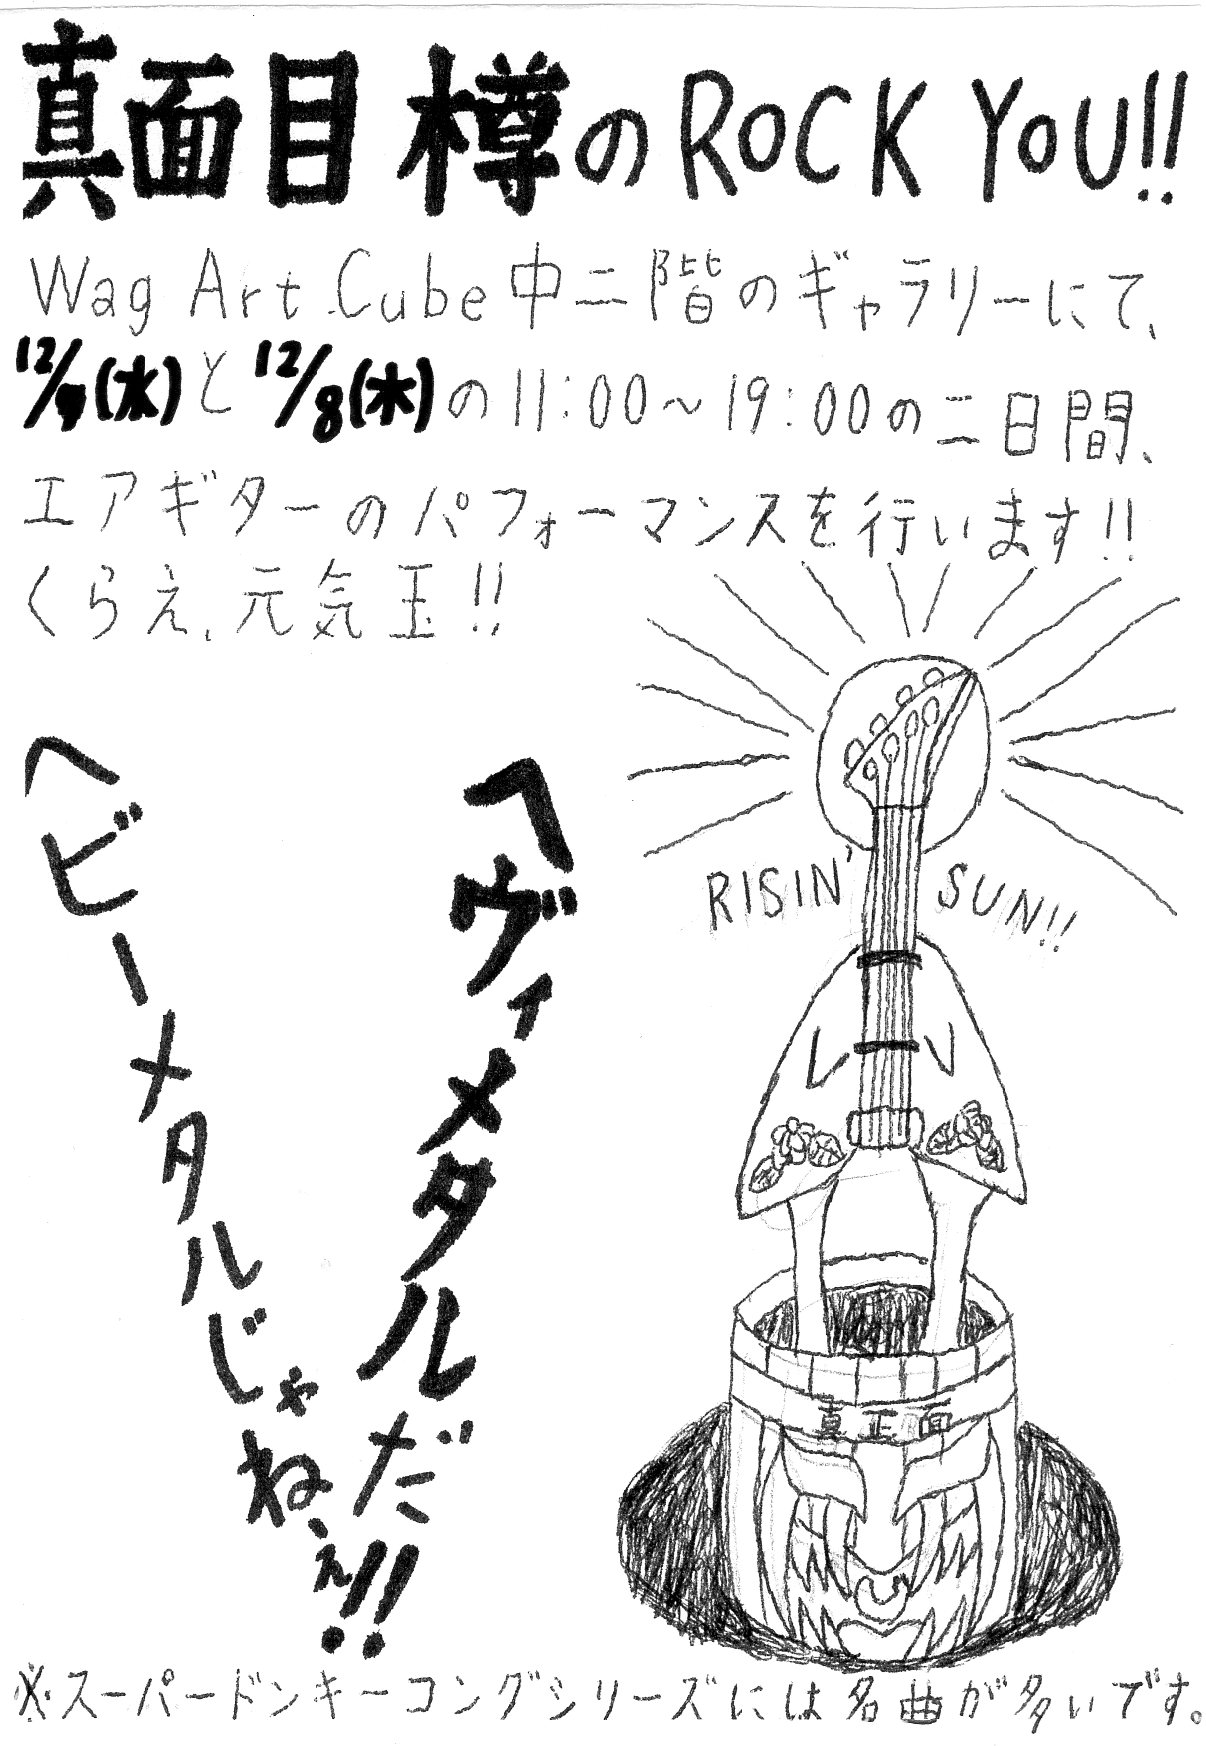 真面目 樽のROCK YOU!!
Wag Art Cube中二階のギャラリーにて、
12/7(水)と12/8(木)の11:00～19:00の二日間、
エアギターのパフォーマンスを行います!!
くらえ、元気玉!!
RISIN' SUN!!
ヘヴィメタルだ!!
ヘビーメタルじゃねぇ!!
真正面
※スーパードンキーコングシリーズには名曲が多いです。